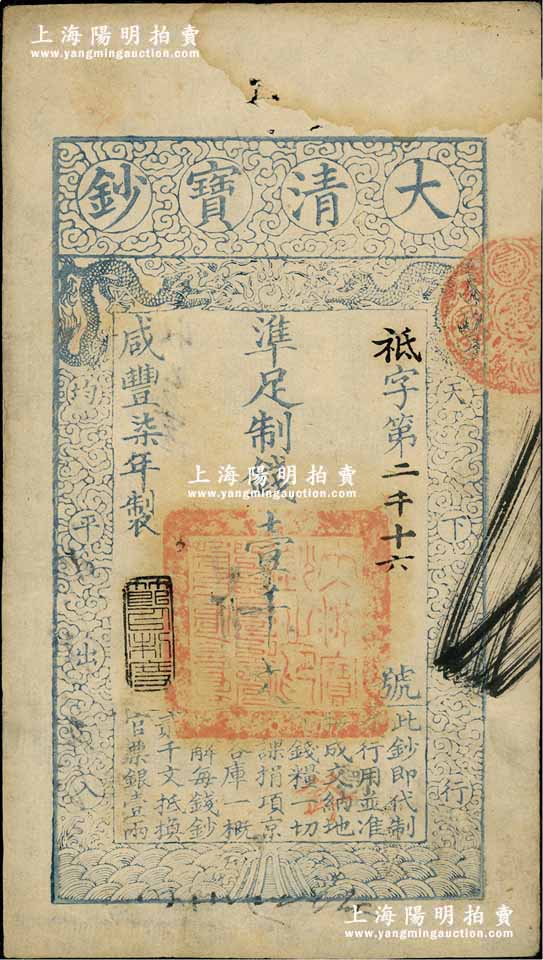 上海陽明拍賣
www.yangmingauction.com
大清寶鈔
天下
行
均平出入
祗字第二千十六號
準足制錢壹千文
咸豐柒年製
此鈔即代制
行用並准
成交納地
錢糧一切
課捐項京
庫一概
解每錢鈔
貳千文抵換
官票銀壹兩
上海陽明拍賣
www.yangmingauction.com
上海陽明拍賣
www.yangmingauction.com